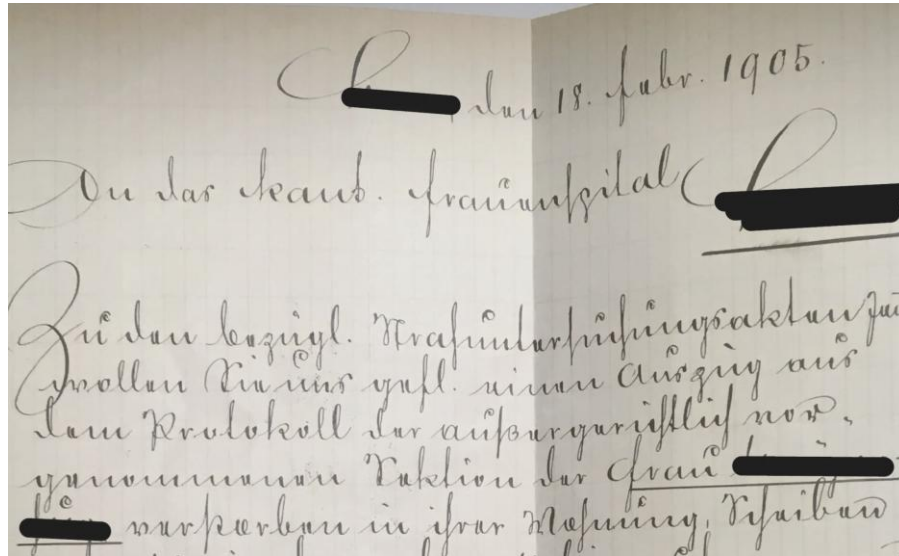 den 18. Febr. 1905.
An das kant. Frauenspital
Zu den bezügl. Strafuntersuchungsakten
wollen Sie uns gefl. einen Auszug aus
dem Protokoll der außergerichtlich vor-
genommenen Sektion der Frau
verstorben in ihrer Wohnung, Scheiben